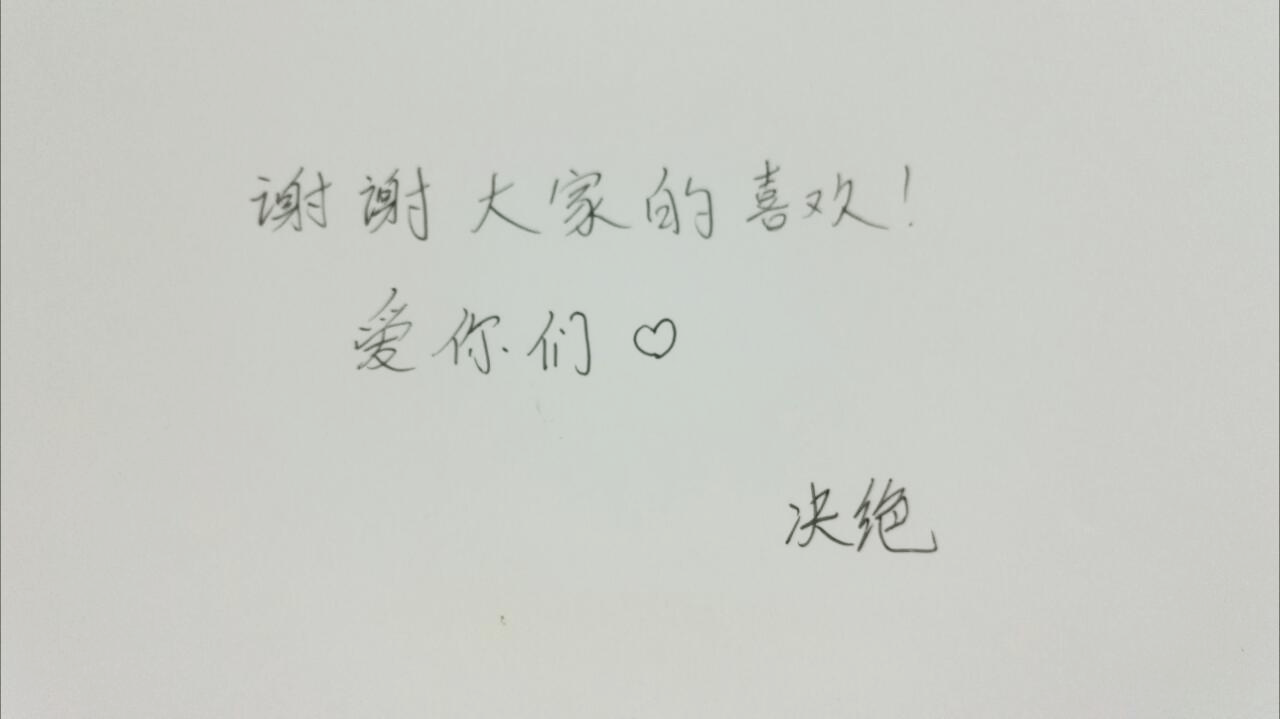 谢谢大家的喜欢!
爱你们♡
决绝